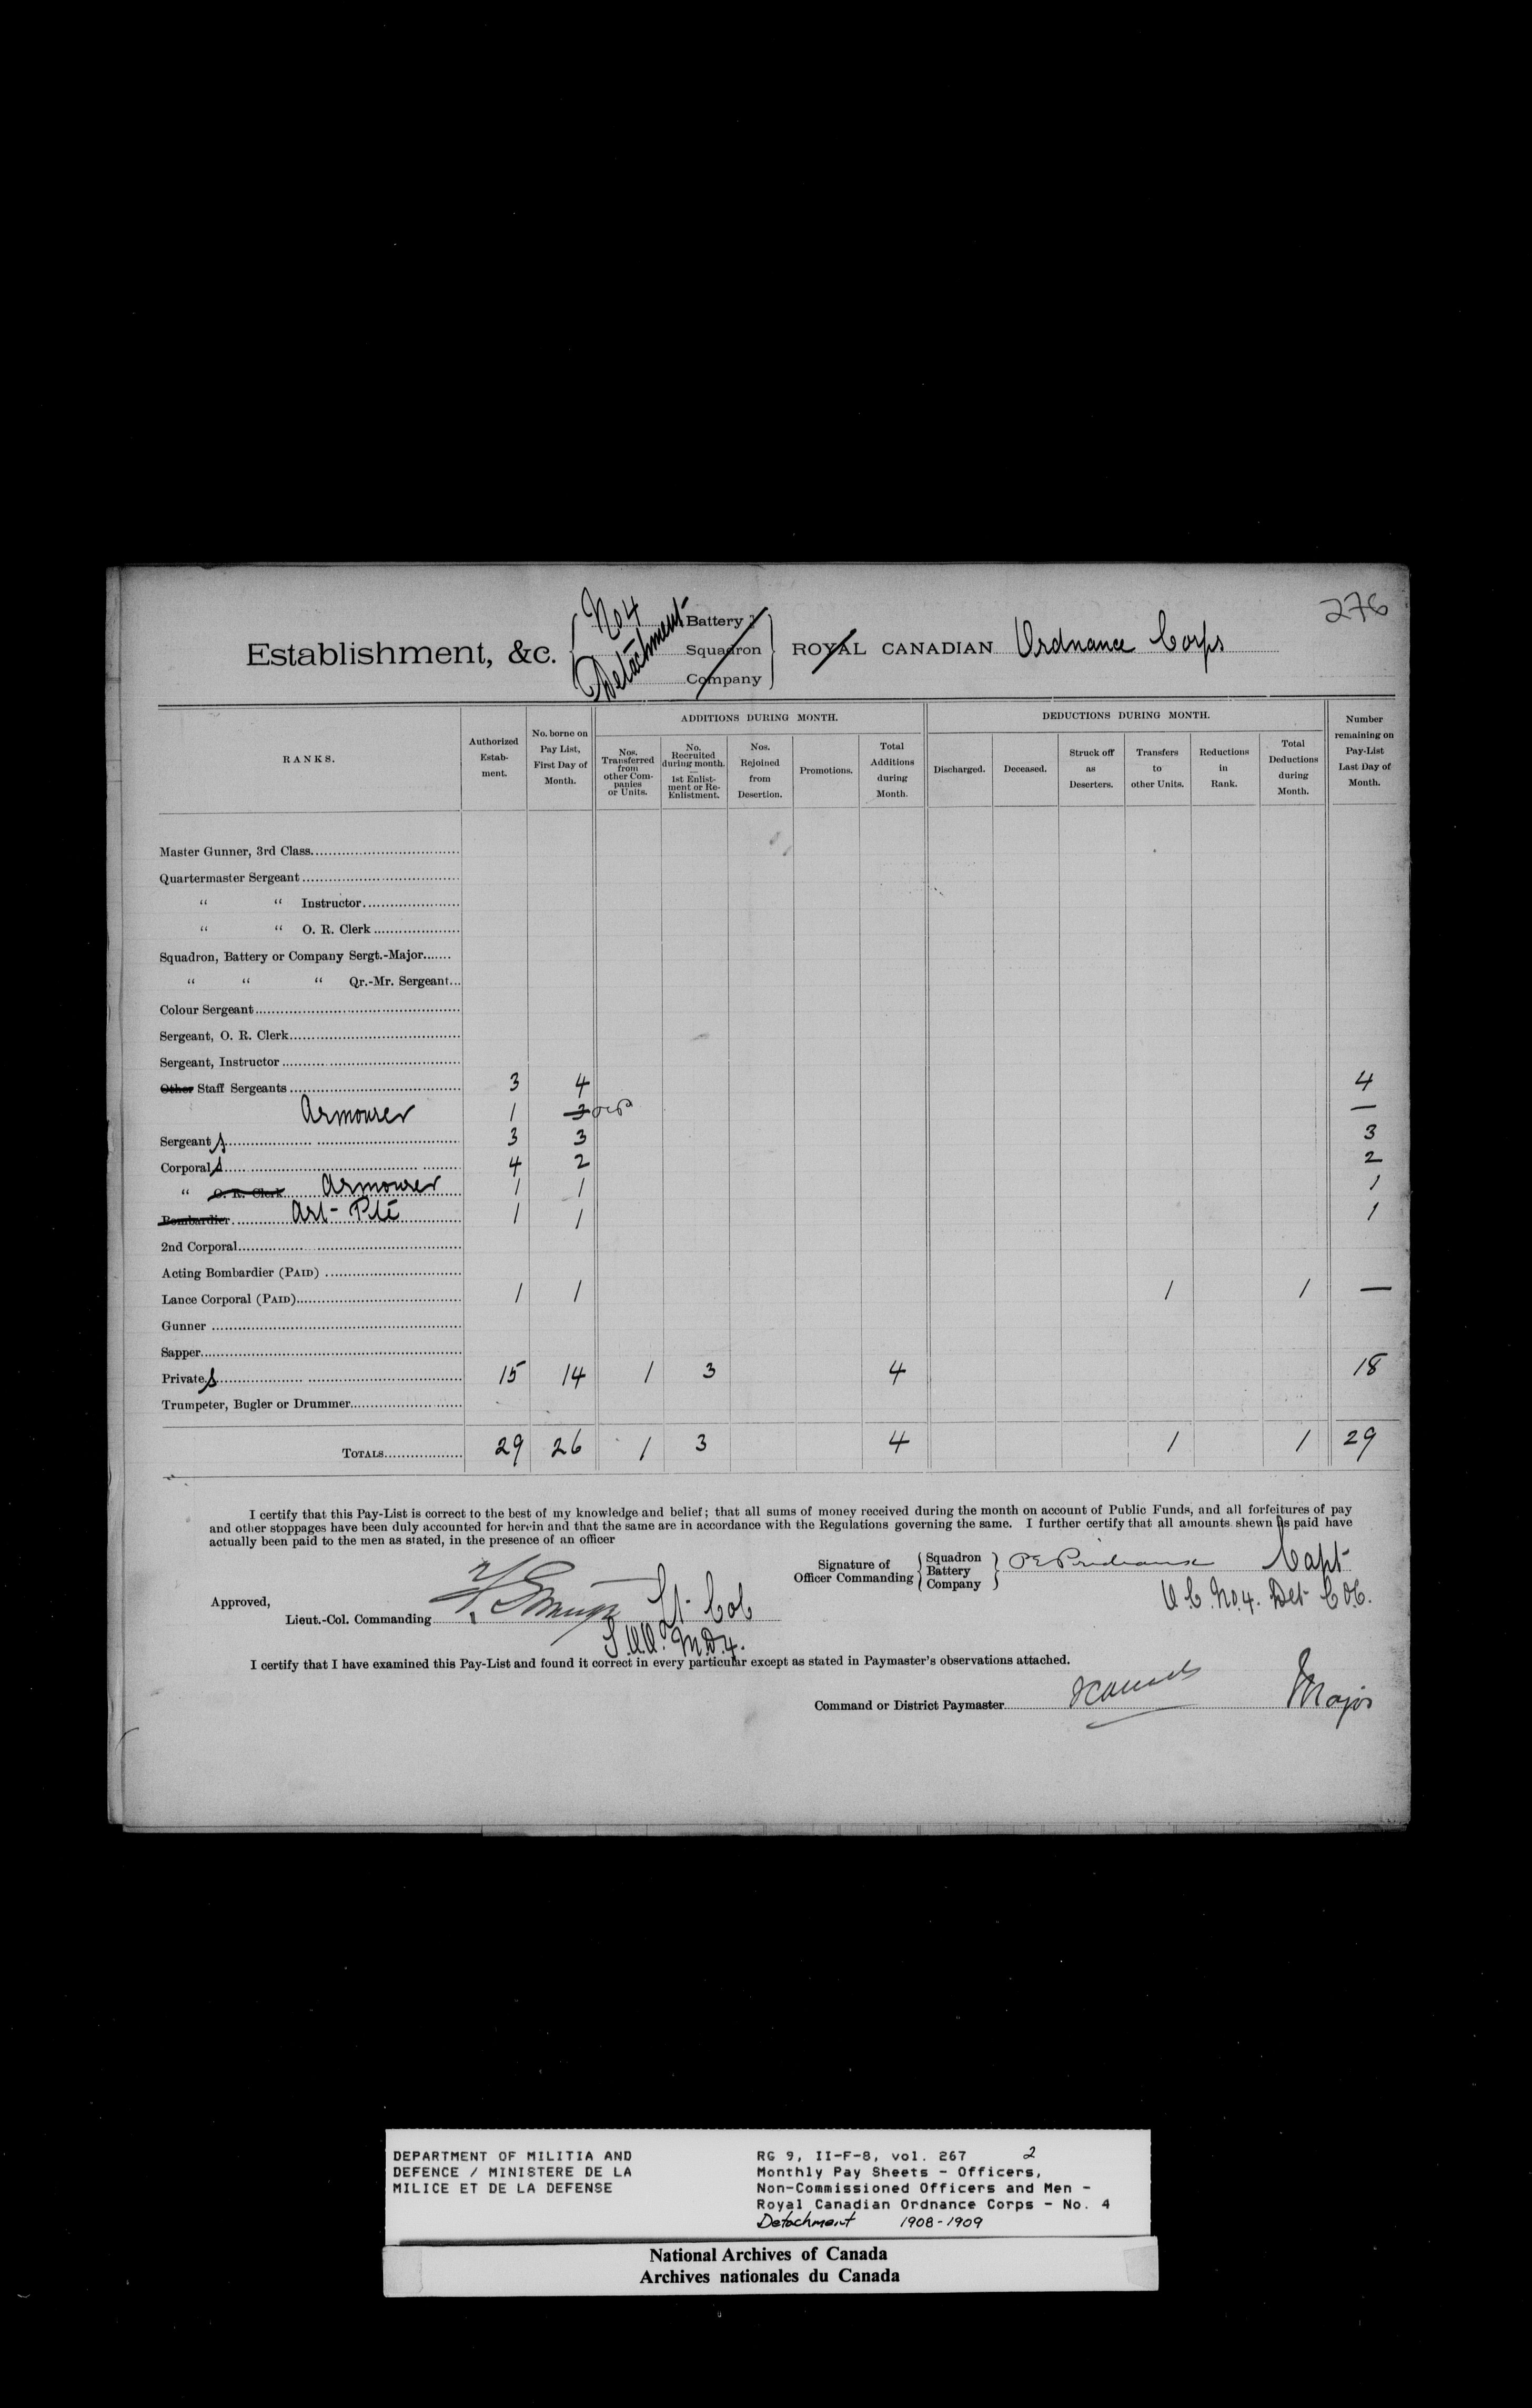 276
Establishment, &c. No 4 Detachment Battery Squadron Company ROYAL CANADIAN Ordnance Corps
RANKS.
Authorized Estab- ment.
No. borne on Pay List, First Day of Month.
ADDITIONS DURING MONTH.
Nos. Transferred from other Com- panies or Units.
No. Recruited during month. — 1st Enlist- ment or Re- Enlistment.
Nos. Rejoined from Desertion.
Promotions.
Total Additions during Month.
DEDUCTIONS DURING MONTH.
Discharged.
Deceased.
Struck off as Deserters.
Transfers to other Units.
Reductions in Rank.
Total Deductions during Month.
Number remaining on Pay-List Last Day of Month.
Master Gunner, 3rd Class
Quartermaster Sergeant
" " Instructor
" " O. R. Clerk
Squadron, Battery or Company Sergt.-Major
" " " Qr.-Mr. Sergeant
Colour Sergeant
Sergeant, O. R. Clerk
Sergeant, Instructor
Other Staff Sergeants 3 4 4
Armourer 1 —
Sergeants 3 3 3
Corporals 4 2 2
" O. R. Clerk Armourer 1 1 1
Bombardier Art- Pte 1 1 1
2nd Corporal
Acting Bombardier (PAID)
Lance Corporal (PAID) 1 1 1 1 —
Gunner
Sapper
Privates 15 14 1 3 4 18
Trumpeter, Bugler or Drummer
TOTALS 29 26 1 3 4 1 1 29
I certify that this Pay-List is correct to the best of my knowledge and belief; that all sums of money received during the month on account of Public Funds, and all forfeitures of pay
and other stoppages have been duly accounted for herein and that the same are in accordance with the Regulations governing the same. I further certify that all amounts shewn as paid have
actually been paid to the men as stated, in the presence of an officer
Signature of Officer Commanding Squadron Battery Company Capt
O C No. 4. Det C.O.C.
Approved,
Lieut.-Col. Commanding Lt. Col
S.O.O. M.D.4.
I certify that I have examined this Pay-List and found it correct in every particular except as stated in Paymaster's observations attached.
Command or District Paymaster Major
DEPARTMENT OF MILITIA AND
DEFENCE / MINISTERE DE LA
MILICE ET DE LA DEFENSE
RG 9, II-F-8, vol. 267 2
Monthly Pay Sheets - Officers,
Non-Commissioned Officers and Men -
Royal Canadian Ordnance Corps - No. 4
Detachment 1908-1909
National Archives of Canada
Archives nationales du Canada